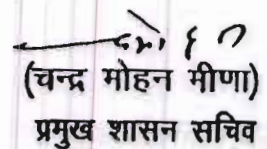 (चन्द्र मोहन मीणा)
प्रमुख शासन सचिव